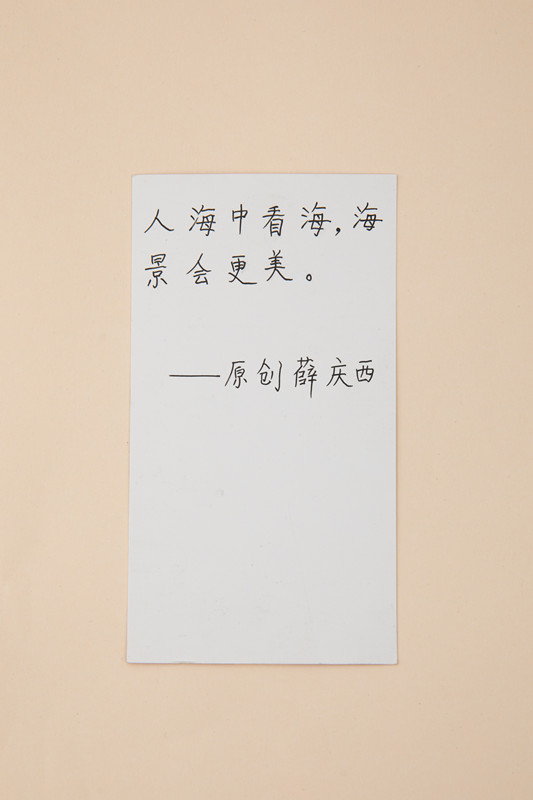 人海中看海,海
景会更美。
——原创薛庆西